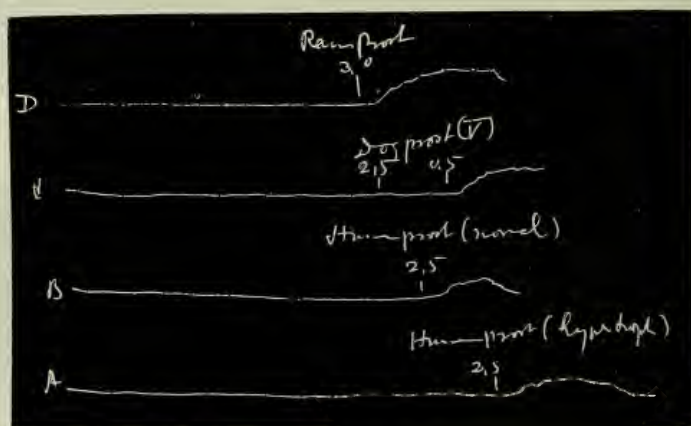 Ram Prost
3,0
D
Dog prost (V)
2,5 0,5
Human prost (normal)
2,5
B
Human prost (hypertroph)
2,5
A